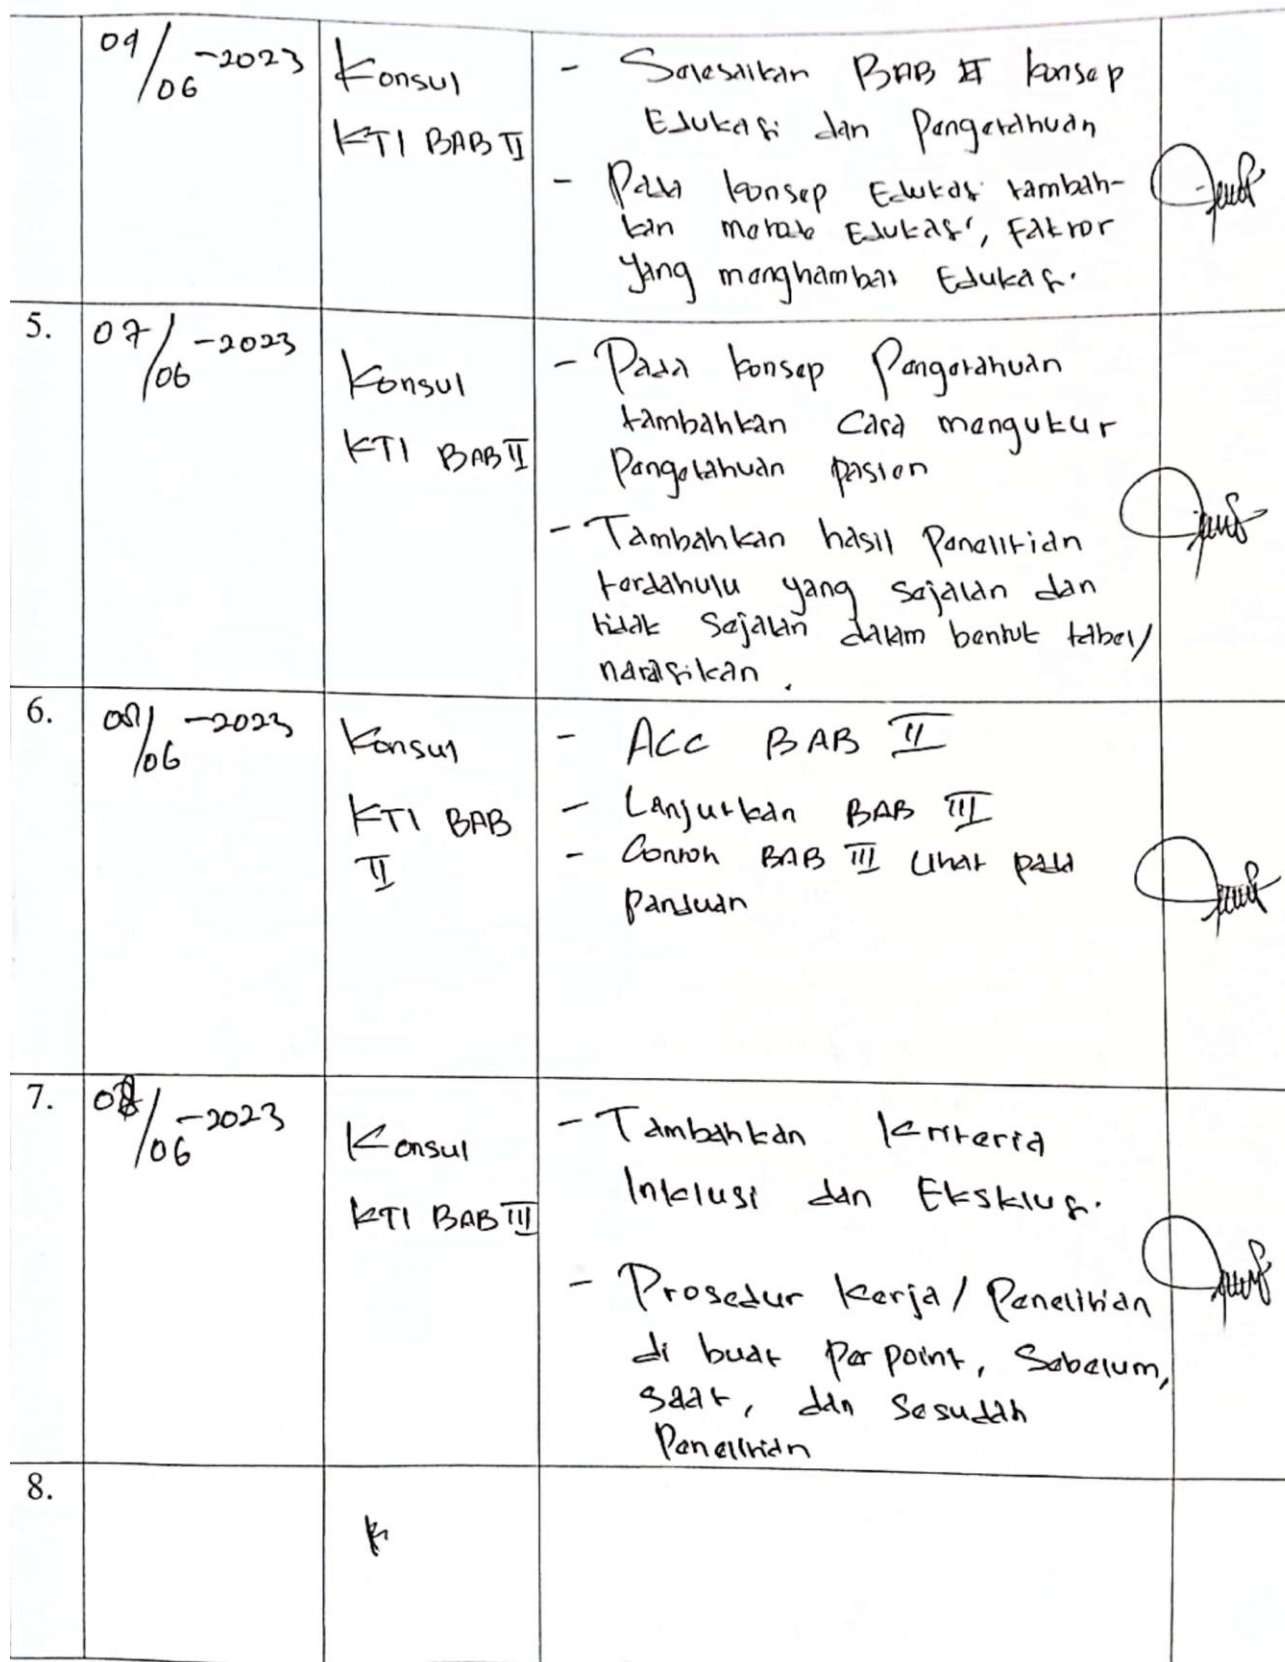 04/06-2023
Konsul
KTI BAB II
- Selesaikan BAB II konsep
Edukasi dan Pengetahuan
- Pada konsep Edukasi tambah-
kan metode Edukasi, Faktor
yang menghambat Edukasi.
5.
07/06-2023
Konsul
KTI BAB II
- Pada konsep Pengetahuan
tambahkan Cara mengukur
Pengetahuan pasien
- Tambahkan hasil Penelitian
terdahulu yang sejalan dan
tidak sejalan dalam bentuk tabel/
narasikan.
6.
/06-2023
Konsul
KTI BAB
II
- ACC BAB II
- Lanjutkan BAB III
- Contoh BAB III Lihat pada
Panduan
7.
08/06-2023
Konsul
KTI BAB III
- Tambahkan Kriteria
Inklusi dan Eksklusi.
- Prosedur Kerja/Penelitian
di buat per point, Sebelum,
saat, dan Sesudah
Penelitian
8.
K